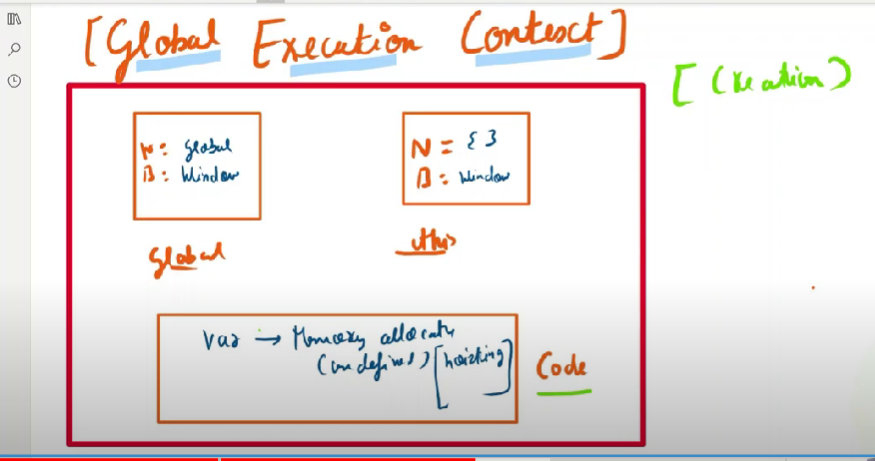 [Global Execution Context]
[(Creation)
N: global
B: Window
N = { }
B: Window
Global
this
Var → Memory allocate
(undefined) [hoisting]
Code